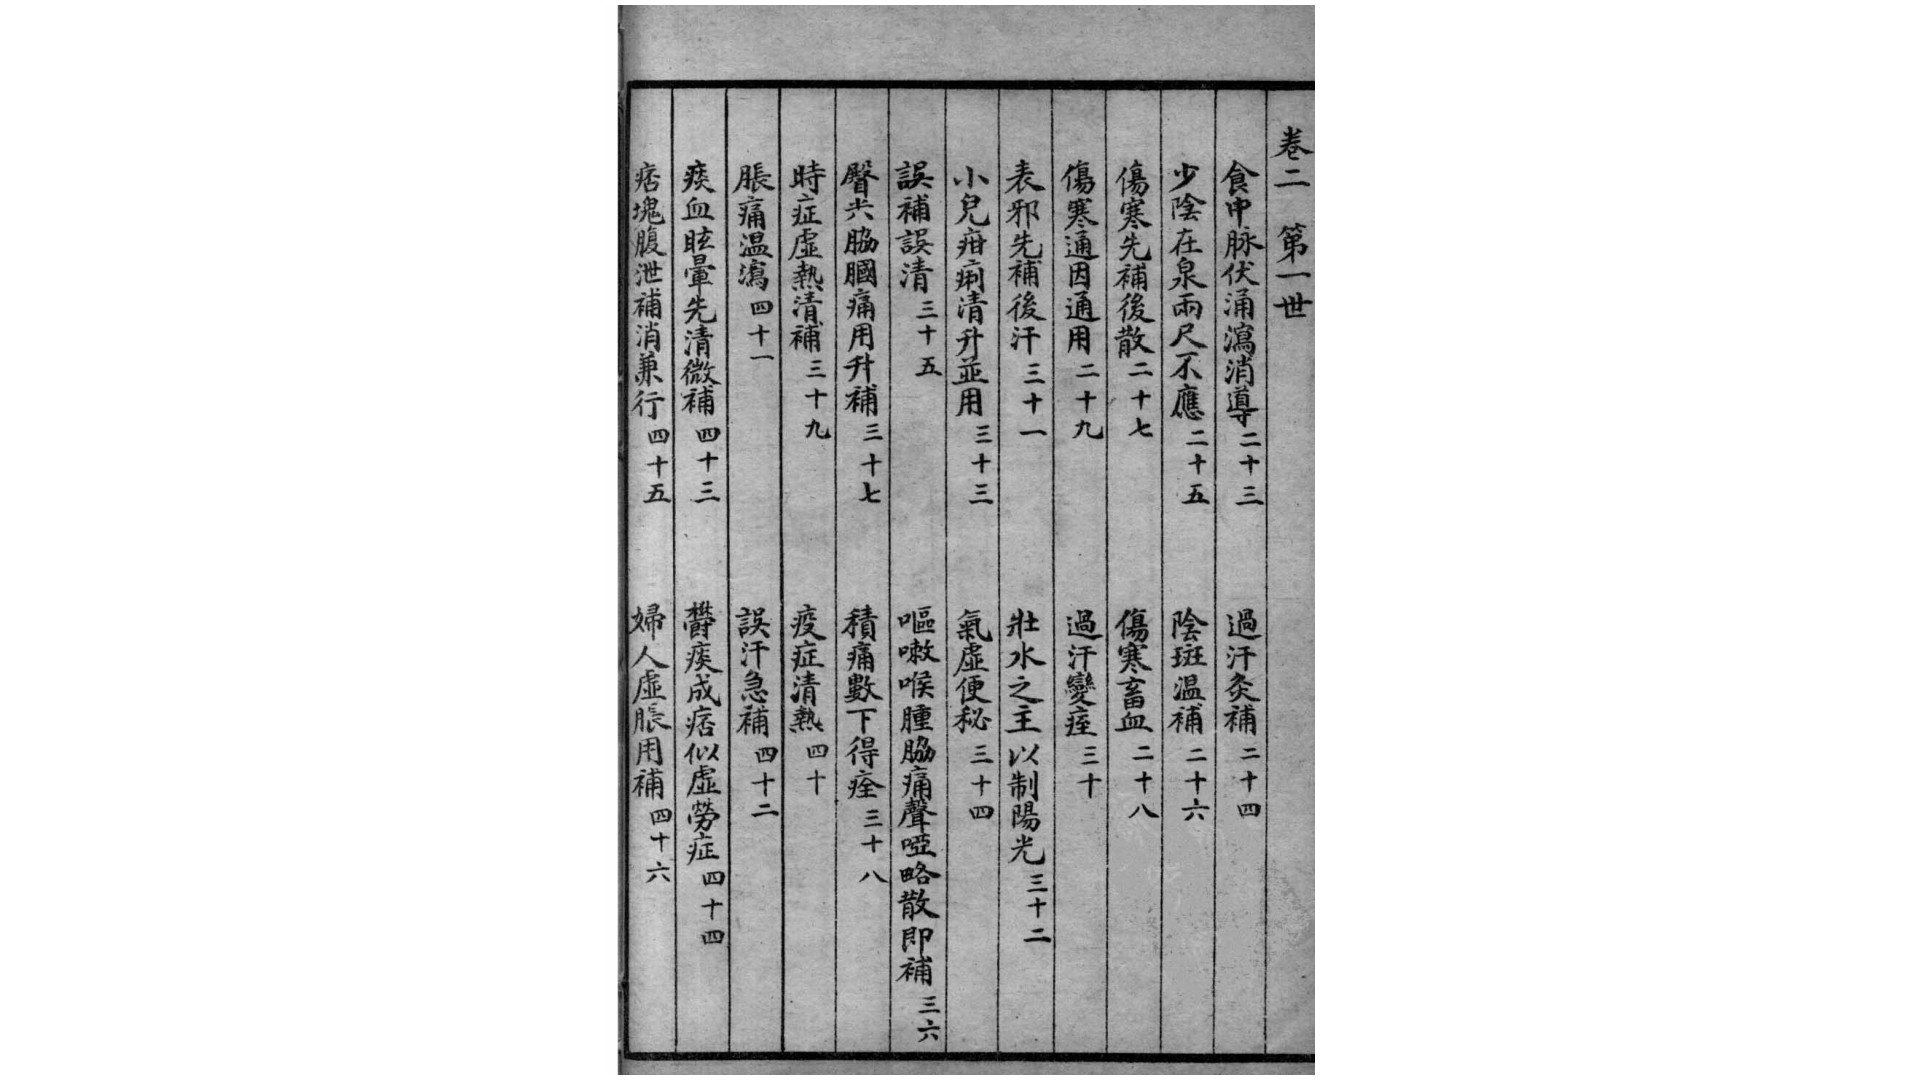 卷二 第一世
食中脉伏涌瀉消導二十三 過汗灸補二十四
少陰在泉兩尺不應二十五 陰斑温補二十六
傷寒先補後散二十七 傷寒畜血二十八
傷寒通因通用二十九 過汗變痓三十
表邪先補後汗三十一 壯水之主以制陽光三十二
小兒疳痢清升並用三十三 氣虛便秘三十四
誤補誤清三十五 嘔嗽喉腫脇痛聲啞略散即補三六
臀尖脇膕痛用升補三十七 積痛數下得痊三十八
時症虛熱清補三十九 疫症清熱四十
脹痛温瀉四十一 誤汗急補四十二
痰血眩暈先清微補四十三 欝痰成痞似虛勞症四十四
痞塊腹泄補消兼行四十五 婦人虛脹用補四十六